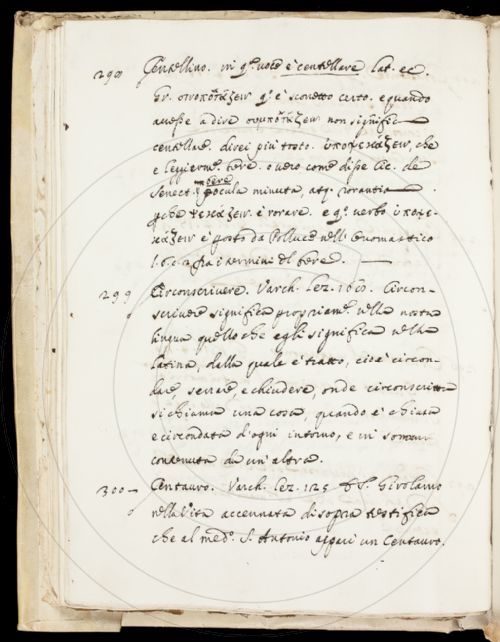 298 Centellino. in q.º voce è centellare lat. ec.
Gr. οινοποτάζειν q.º è scorretto certo. e quando
avesse a dire συμποτάζειν non signific—
centellare. direi più tosto. ὑποψεκάζειν, che
è leggierm.te bere. overo come disse Cic. de
Senect. bere pocula minuta, atq. rorantia—.
pche ψεκάζειν. è rorare. e q.º verbo ὑποψε-
κάζειν è posto da Polluce nell' Onomastico
l. 6. c. 2 fra i termini del bere. —
299 Circonscrivere. Varch. Lez. 160. Circon-
scrivere significa propriam.te nella nostra
lingua quello che egli significa nella
latina, dalla quale è tratto, cioè circon-
dare, serrare, e chiudere, onde circonscritta
si chiama una cosa, quando è chiusa
e circondata d'ogni intorno, e in somma
contenuta da un' altra.
300 Centauro. Varch. Lez. 125 S. Girolamo
nella Vita accennata di sopra testifica
che al med.º S. Antonio apparì un Centauro.